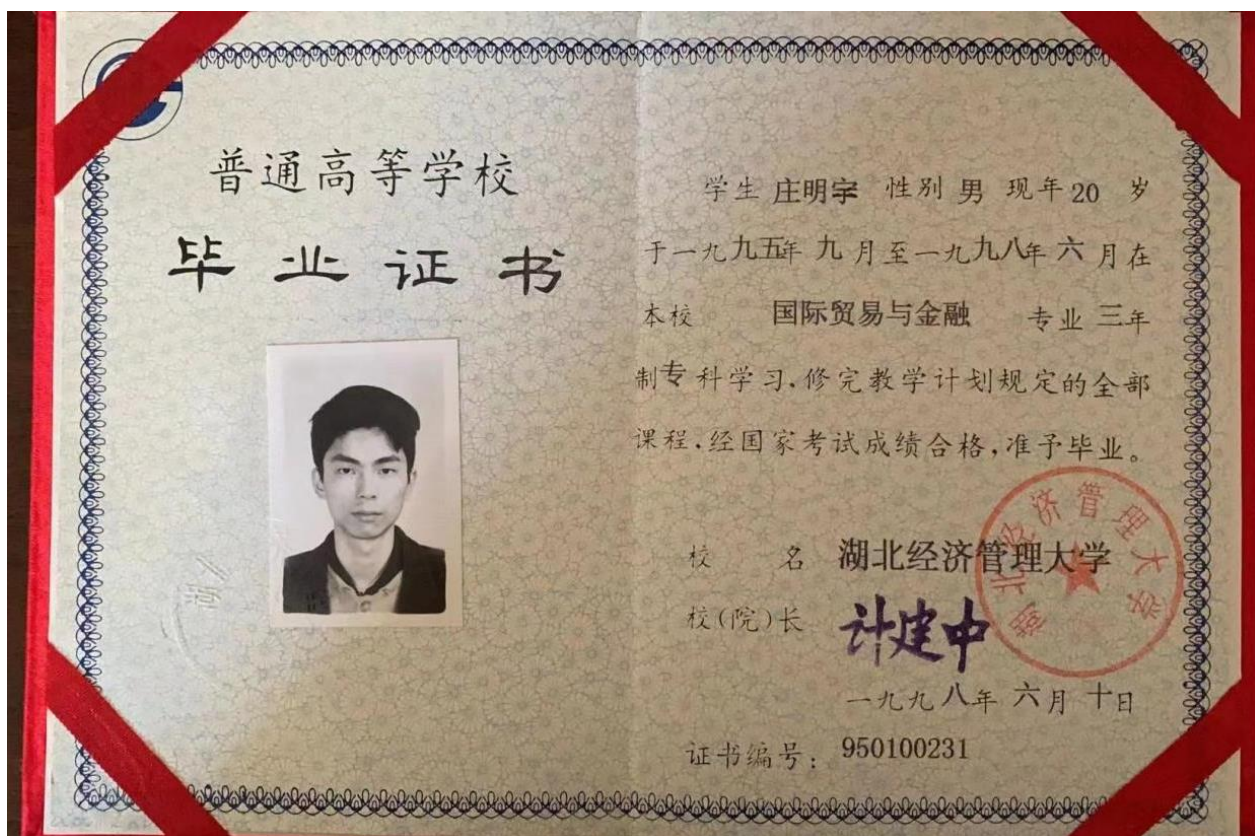 普通高等学校
毕业证书
学生 庄明宇 性别 男 现年 20 岁
于一九九五年 九 月至一九九八年 六 月在
本校 国际贸易与金融 专业 三年
制专科学习,修完教学计划规定的全部
课程,经国家考试成绩合格,准予毕业。
校 名 湖北经济管理大学
湖北经济管理大学
校(院)长 计建中
一九九八年 六月 十日
证书编号: 950100231